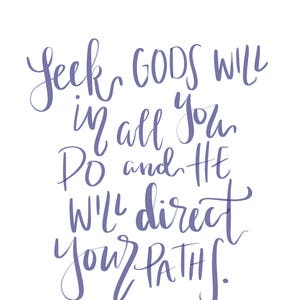 Seek GODS WILL
in all You
DO and HE
WILL direct
Your PATHS.